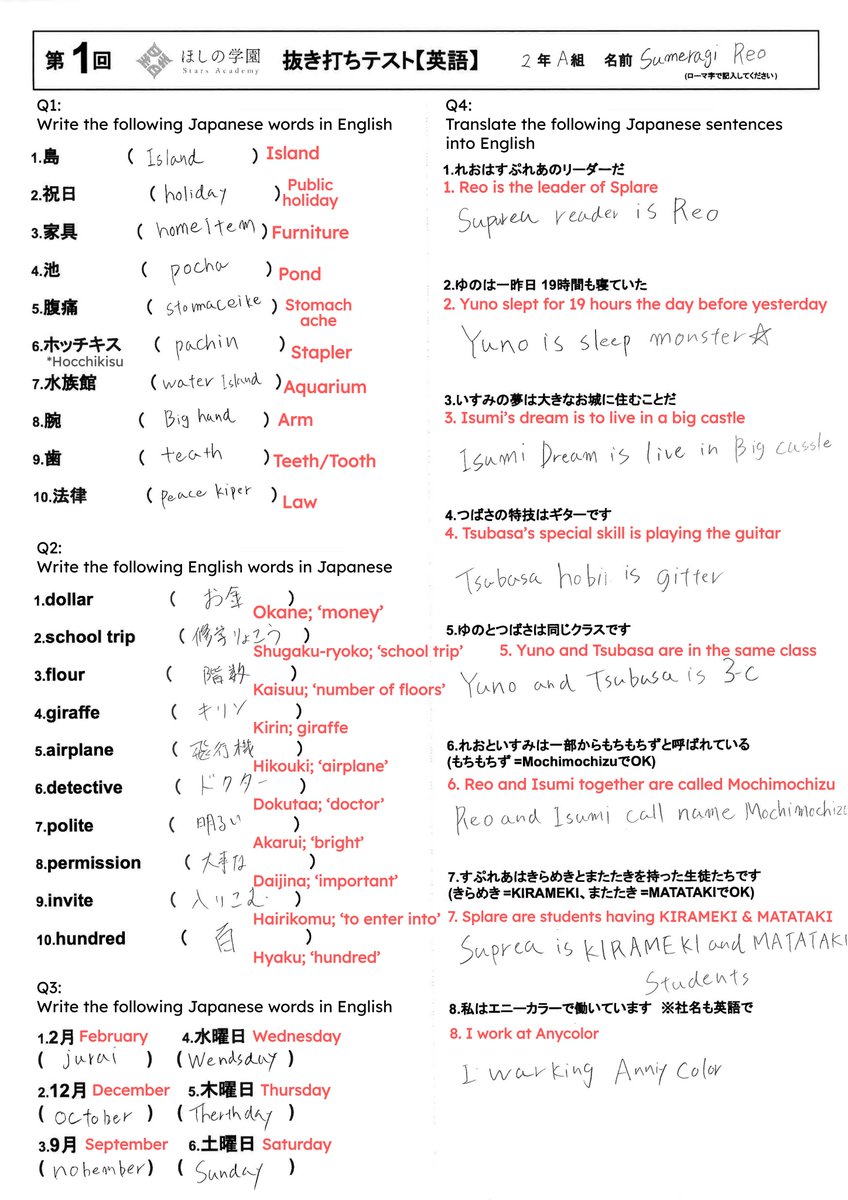 第1回 ほしの学園 Stars Academy 抜き打ちテスト【英語】 2年A組 名前 Sumeragi Reo
(ローマ字で記入してください)
Q1:
Write the following Japanese words in English
1.島 ( Island ) Island
2.祝日 ( holiday ) Public holiday
3.家具 ( homeitem ) Furniture
4.池 ( pocha ) Pond
5.腹痛 ( stomaceike ) Stomach ache
6.ホッチキス ( pachin ) Stapler
*Hocchikisu
7.水族館 ( water Island ) Aquarium
8.腕 ( Big hand ) Arm
9.歯 ( teath ) Teeth/Tooth
10.法律 ( peace kiper ) Law
Q2:
Write the following English words in Japanese
1.dollar ( お金 )
Okane; ‘money’
2.school trip ( 修学りょこう )
Shugaku-ryoko; ‘school trip’
3.flour ( 階数 )
Kaisuu; ‘number of floors’
4.giraffe ( キリン )
Kirin; giraffe
5.airplane ( 飛行機 )
Hikouki; ‘airplane’
6.detective ( ドクター )
Dokutaa; ‘doctor’
7.polite ( 明るい )
Akarui; ‘bright’
8.permission ( 大事な )
Daijina; ‘important’
9.invite ( 入りこむ )
Hairikomu; ‘to enter into’
10.hundred ( 百 )
Hyaku; ‘hundred’
Q3:
Write the following Japanese words in English
1.2月 February 4.水曜日 Wednesday
( jurai ) ( Wendsday )
2.12月 December 5.木曜日 Thursday
( October ) ( Therthday )
3.9月 September 6.土曜日 Saturday
( nobember ) ( Sunday )
Q4:
Translate the following Japanese sentences
into English
1.れおはすぷれあのリーダーだ
1. Reo is the leader of Splare
Suprea reader is Reo
2.ゆのは一昨日 19時間も寝ていた
2. Yuno slept for 19 hours the day before yesterday
Yuno is sleep monster☆
3.いすみの夢は大きなお城に住むことだ
3. Isumi’s dream is to live in a big castle
Isumi Dream is live in Big cassle
4.つばさの特技はギターです
4. Tsubasa’s special skill is playing the guitar
Tsubasa hobii is gitter
5.ゆのとつばさは同じクラスです
5. Yuno and Tsubasa are in the same class
Yuno and Tsubasa is 3-C
6.れおといすみは一部からもちもちずと呼ばれている
(もちもちず =MochimochizuでOK)
6. Reo and Isumi together are called Mochimochizu
Reo and Isumi call name Mochimochizu
7.すぷれあはきらめきとまたたきを持った生徒たちです
(きらめき =KIRAMEKI、またたき =MATATAKIでOK)
7. Splare are students having KIRAMEKI & MATATAKI
Suprea is KIRAMEKI and MATATAKI
Students
8.私はエニーカラーで働いています ※社名も英語で
8. I work at Anycolor
I warking Anniy Color